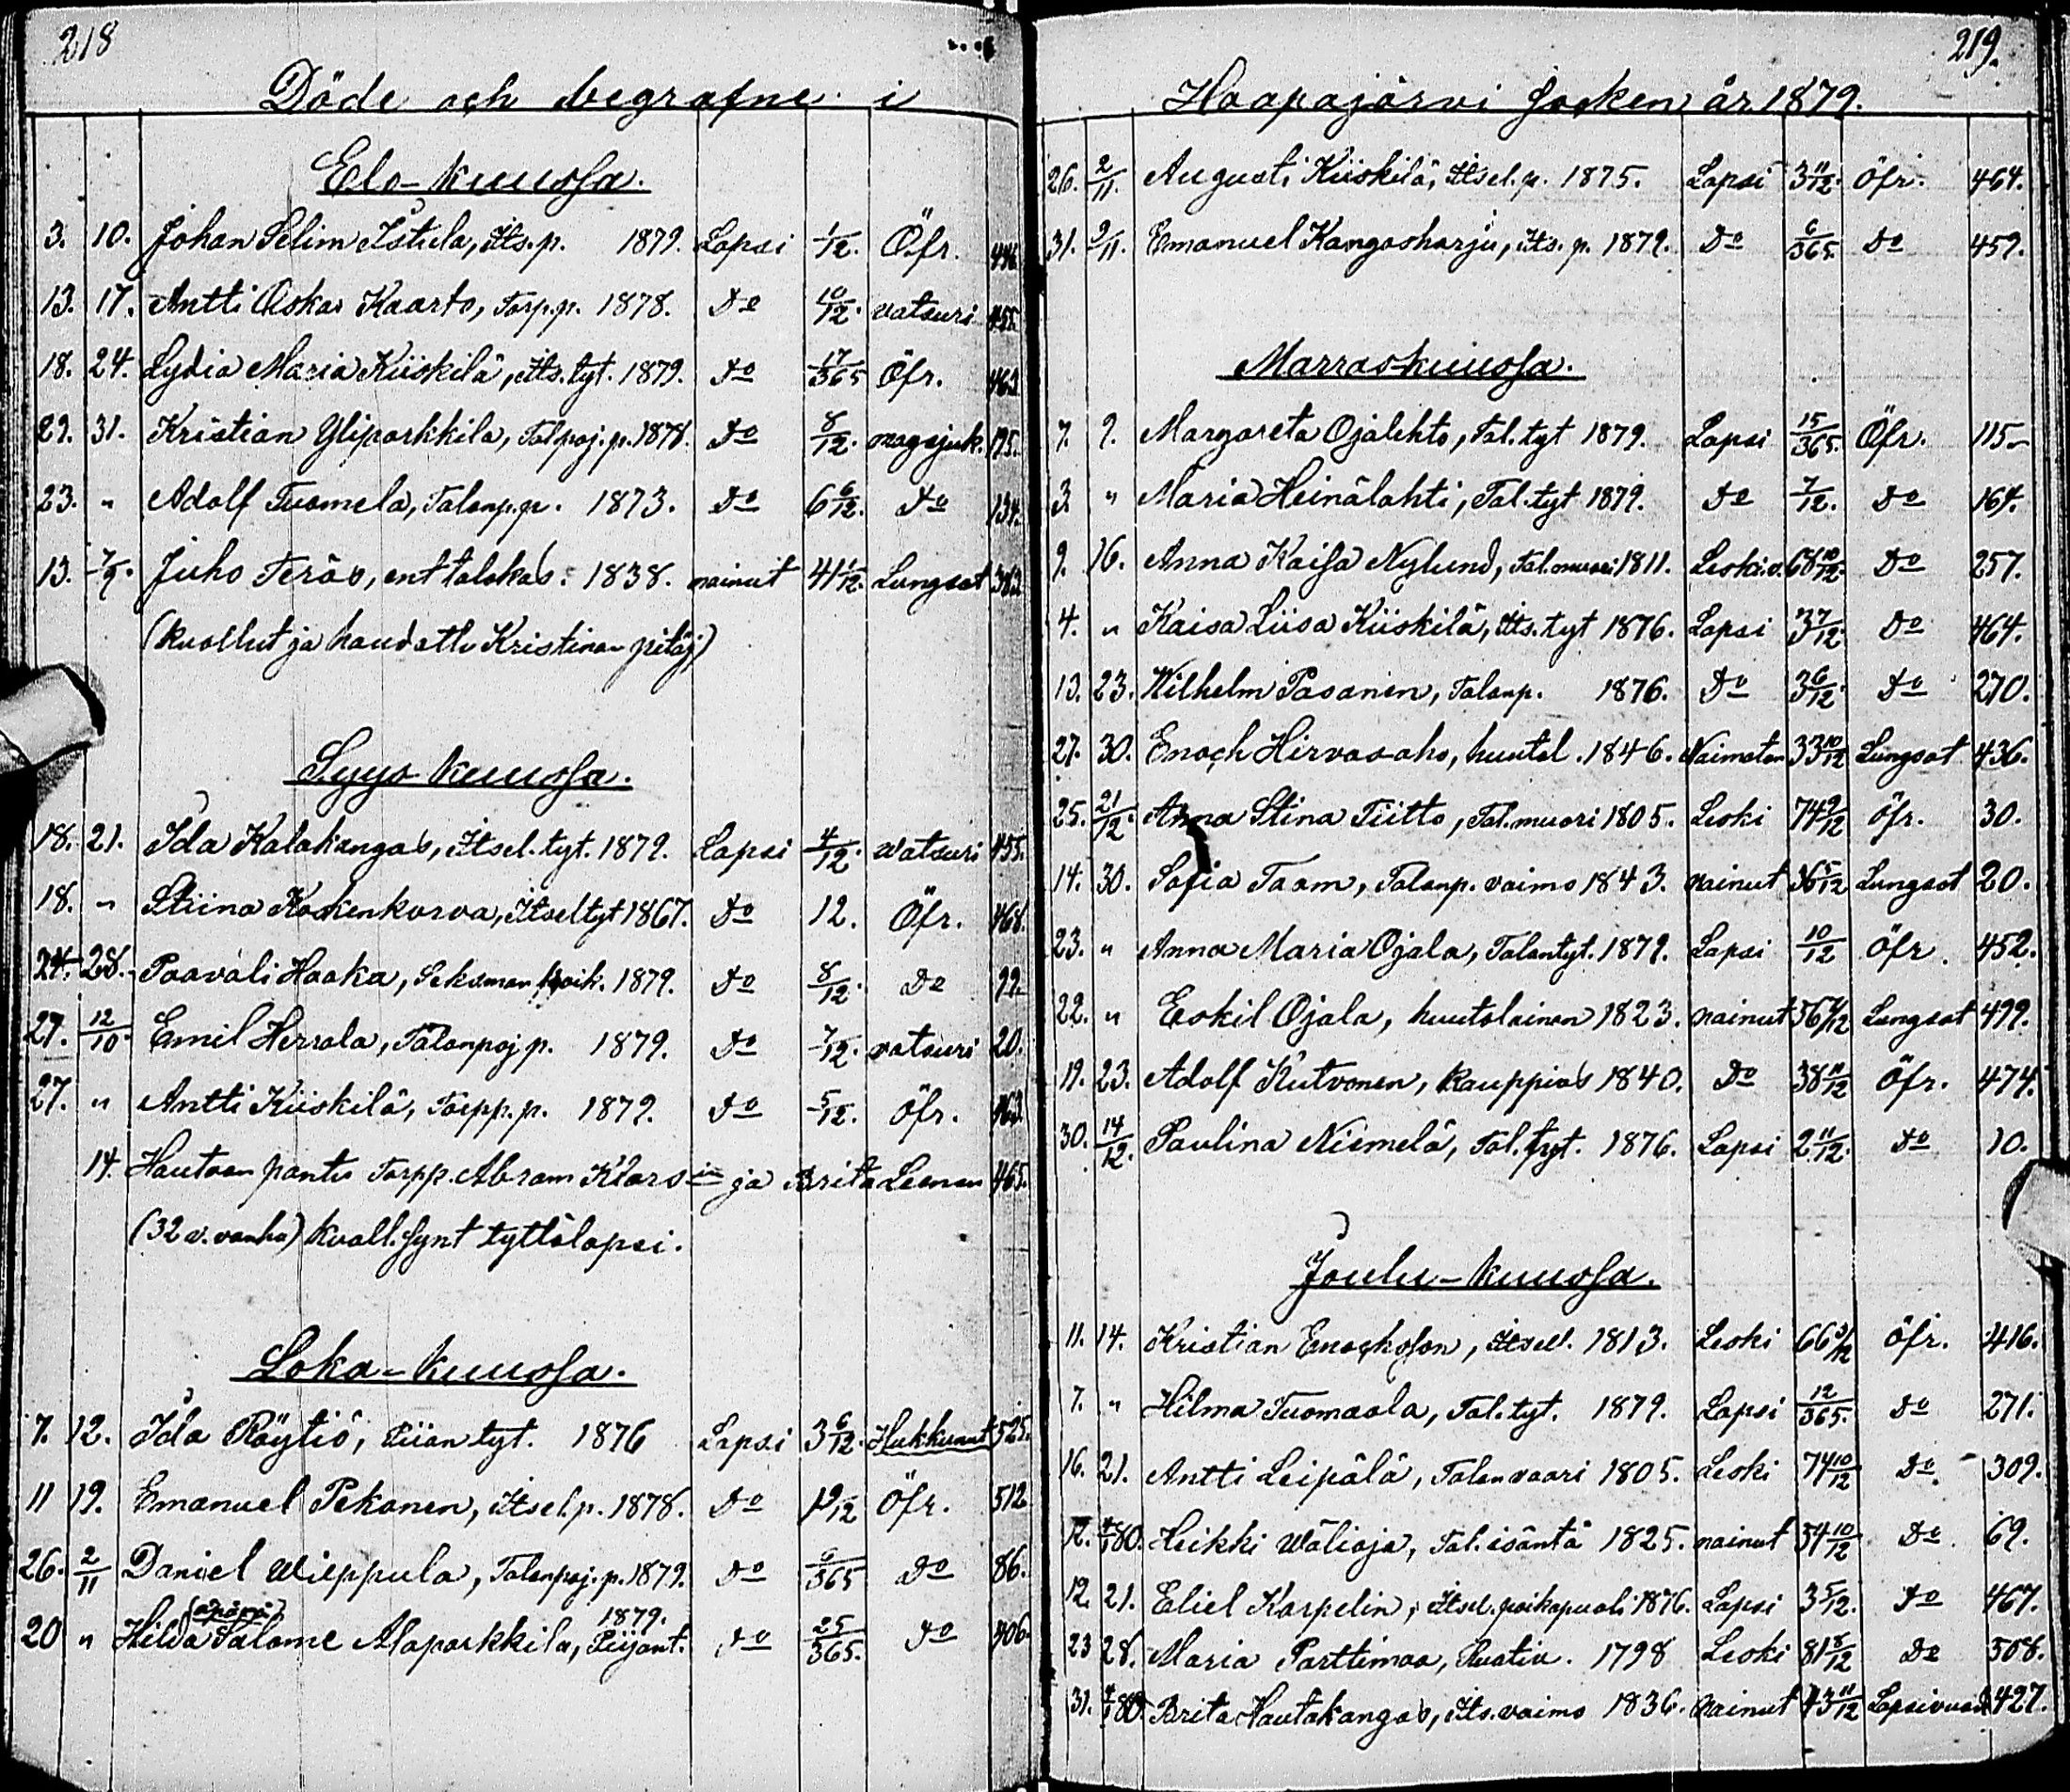 218
Döde och begrafne i
Elo-kuussa.
3. 10. Johan Selim Istula, Its. p. 1879. Lapsi 1/12. Öfr.
13. 17. Antti Oskar Kaarto, Torp. p. 1878. Do 10/12. vatsuri 455.
18. 24. Lydia Maria Kiiskilä, Its. tyt. 1879. Do 17/365 Öfr. 463.
29. 31. Kristian Yliparkkila, Talpoj. p. 1878. Do 8/12. magsjuk.
23. " Adolf Tuomela, Talonp. p. 1873. Do 6 6/12. Do 134.
13. 7/9. Juho Teräs, ent talokas. 1838. nainut 41 1/12. Lungsot
(kuollut ja haudattu Kristinan pitäj)
Syys kuussa.
18. 21. Ida Kalakangas, Itsel. tyt. 1879. Lapsi 4/12. vatsuri 455.
18. " Stiina Koskenkorva, Itsel tyt 1867. Do 12. Öfr. 468.
24. 28. Paavali Haaka, Seksman poik. 1879. Do 8/12. Do 99.
27. 12/10. Emil Herrala, Talonpoj p. 1879. Do 7/12. vatsuri 20.
27. " Antti Kiiskilä, Torpp. p. 1879. Do 5/12. Öfr. 463.
14. Hautaan pantu Torpp. Abram Klars in ja Brita Leenan 465.
(32 v. vanha) kuoll. synt tyttölapsi.
Loka-kuussa.
7. 12. Ida Röytiö, Piian tyt. 1876 Lapsi 3 6/12. Hukkunut 525.
11 19. Emanuel Pekonen, Itsel. p. 1878. Do 1 9/12 Öfr. 512
26. 2/11 Daniel Wieppula, Talonpoj. p. 1879. Do 6/365 Do 86.
(äpärä) 1879.
20 " Hilda Salome Alaparkkila, Piijant. Do 25/365. Do 406.
219.
Haapajärvi Socken år 1879.
26. 2/11. Augusti Kiiskilä, Itsel. p. 1875. Lapsi 3 11/12. Öfr. 464.
31. 9/11. Emanuel Kangasharju, Its. p. 1879. Do 6/365. Do 459.
Marraskuussa.
7. 9. Margareta Ojalehto, Tal. tyt 1879. Lapsi 15/365. Öfr. 115
3. " Maria Heinälahti, Tal. tyt 1879. Do 7/12. Do 164.
9. 16. Anna Kaisa Nylund, Tal. muori 1811. Leski. v. 68 10/12. Do 257.
4. " Kaisa Liisa Kiiskilä, Its. tyt 1876. Lapsi 3 7/12. Do 464.
13. 23. Wilhelm Pasanen, Talonp. 1876. Do 3 6/12. Do 270.
27. 30. Enoch Hirvasaho, huutol. 1846. Naimaton 33 10/12 Lungsot 436.
25. 21/12. Anna Stina Tiitto, Tal. muori 1805. Leski 74 9/12 Öfr. 30.
14. 30. Sofia Taam, Talonp. vaimo 1843. nainut 36 5/12 Lungsot 20.
23. " Anna Maria Ojala, Talontyt. 1879. Lapsi 10/12 Öfr. 452.
22. " Eskil Ojala, huutolainen 1823. nainut 56 4/12 Lungsot 499.
19. 23. Adolf Kutvonen, kauppias 1840. Do 38 11/12 Öfr. 474.
30. 14/12. Paulina Niemelä, Tal. tyt. 1876. Lapsi 2 11/12. Do 10.
Joulu-kuussa.
11. 14. Kristian Enochsson, Itsell. 1813. Leski 66 3/12 Öfr. 416.
7. " Hilma Tuomaala, Tal. tyt. 1879. Lapsi 12/365. Do 271.
16. 21. Antti Leipälä, Talonvaari 1805. Leski 74 10/12 Do. 309.
12. 4/1 80. Heikki Wälioja, Tal. isäntä 1825. nainut 54 10/12 Do. 69.
12. 21. Eliel Karpelin, Itsel. poikapuoli 1876. Lapsi 3 5/12. Do 467.
23 28. Maria Parttimaa, Ruotiv. 1798 Leski 81 8/12 Do 508.
31. 4/1 80. Brita Hautakangas, Its. vaimo 1836. nainut 43 11/12 Lapsivuod. 427.